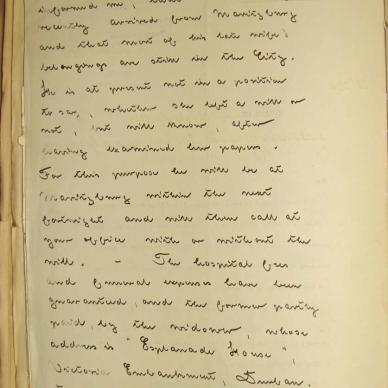 informed me, that
recently arrived from Maritzburg
and that most of his late wife's
belongings are still in the City.
He is at present not in a position
to say, whether she left a will or
not, but will know, after
having examined her papers.
For this purpose he will be at
Maritzburg within the next
fortnight and will then call at
your office with or without the
will. - The hospital fees
and funeral expenses have been
guaranteed, and the former partly
paid, by the widower, whose
address is "Esplanade House",
Victoria Embankment, Durban.